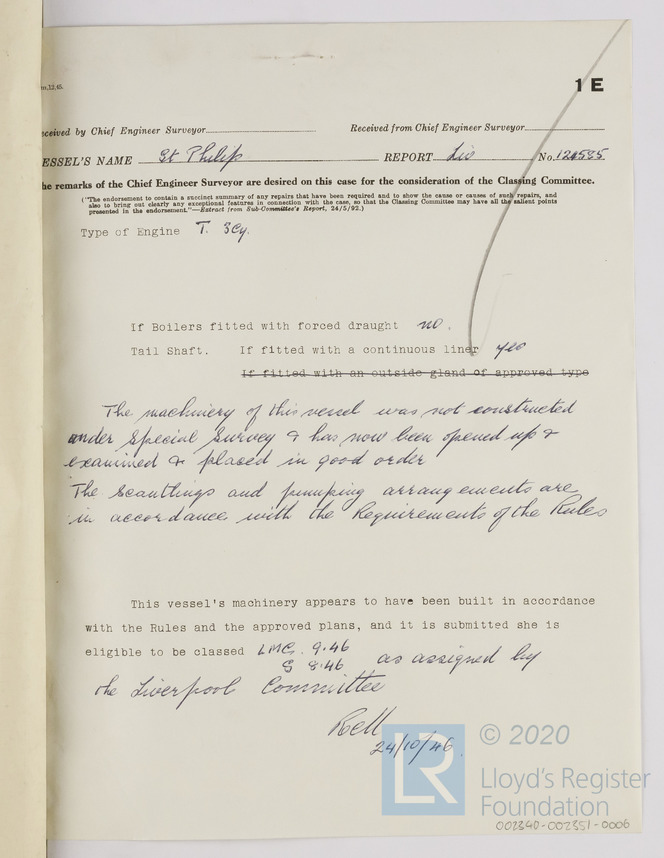 1 E
Received by Chief Engineer Surveyor Received from Chief Engineer Surveyor
VESSEL'S NAME St Philip REPORT Liv No. 124535
The remarks of the Chief Engineer Surveyor are desired on this case for the consideration of the Classing Committee.
("The endorsement to contain a succinct summary of any repairs that have been required and to show the cause or causes of such repairs, and
also to bring out clearly any exceptional features in connection with the case, so that the Classing Committee may have all the salient points
presented in the endorsement."—Extract from Sub-Committee's Report, 24/5/92.)
Type of Engine T. 3Cy.
If Boilers fitted with forced draught no.
Tail Shaft. If fitted with a continuous liner yes
If fitted with an outside gland of approved type
The machinery of this vessel was not constructed
under Special Survey & has now been opened up &
examined & placed in good order
The Scantlings and pumping arrangements are
in accordance with the Requirements of the Rules
This vessel's machinery appears to have been built in accordance
with the Rules and the approved plans, and it is submitted she is
eligible to be classed LMC. 9.46
S 8.46 as assigned by
the Liverpool Committee
24/10/46.
LR
© 2020
Lloyd's Register
Foundation
002340-002351-0006